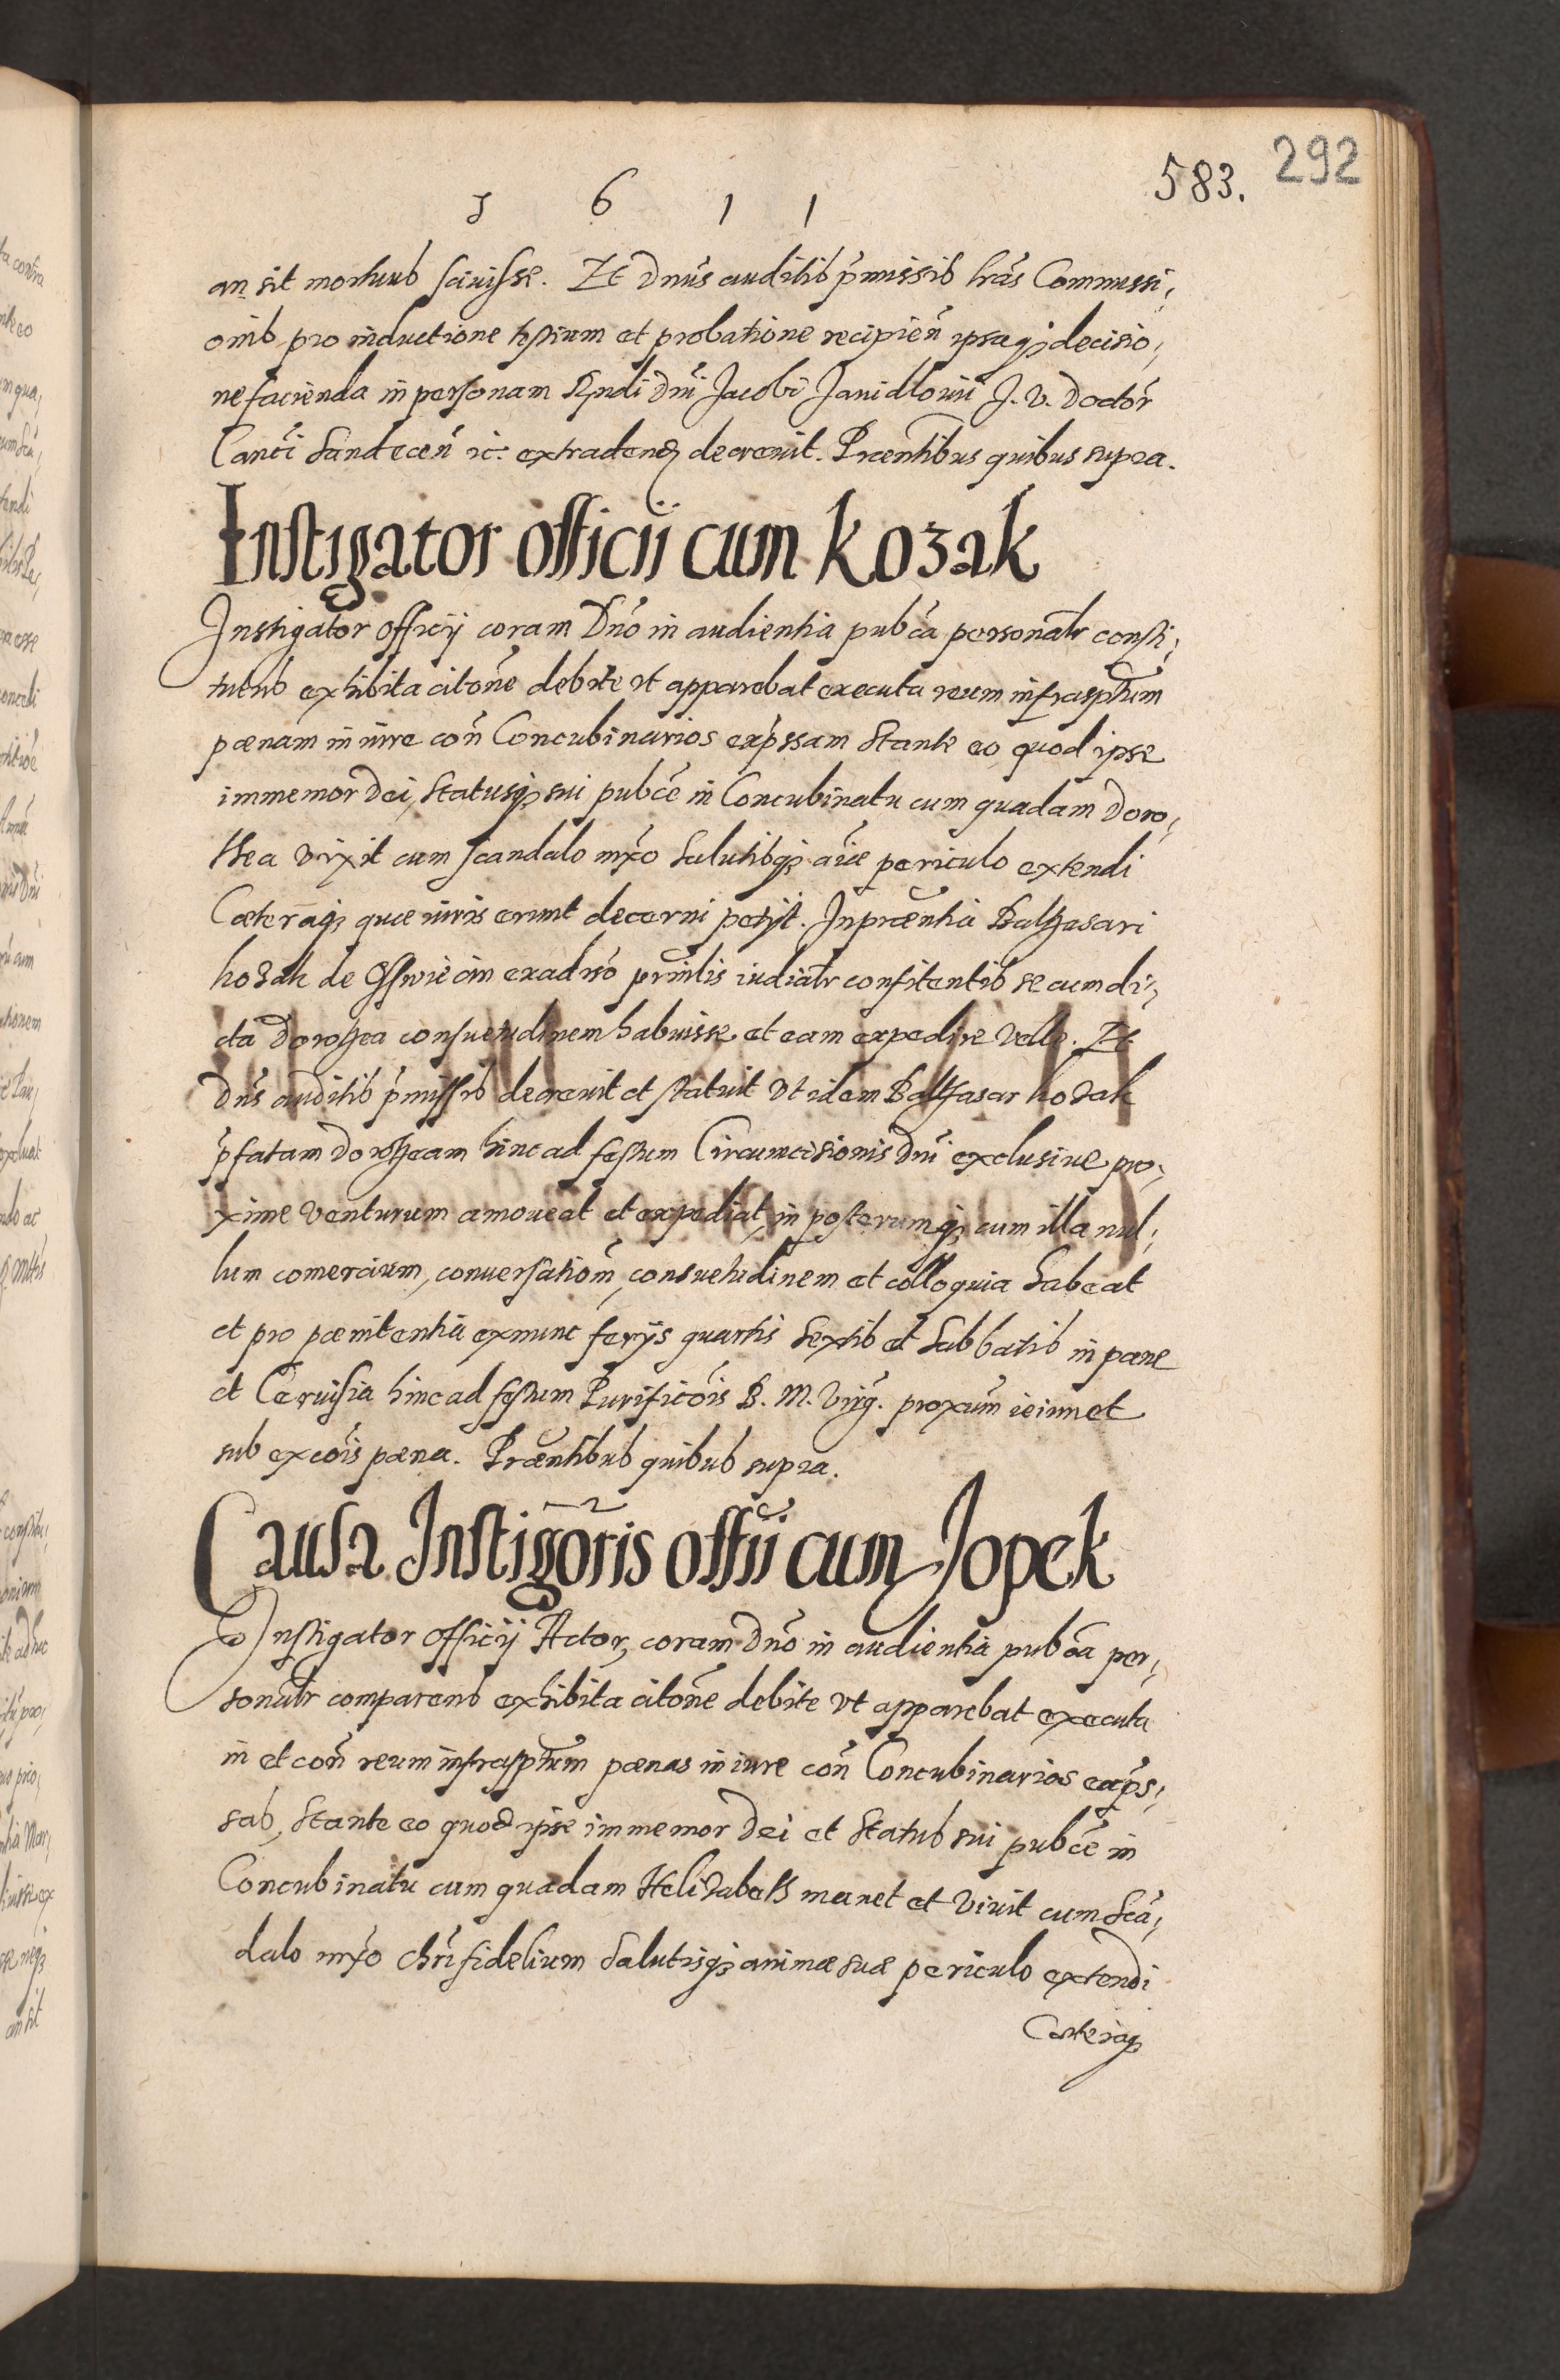 292
583.
1 6 1 1
an sit mortuus scivisse. Et Dnus auditis pmissis lras Commissi,
onis pro inductione testium et probatione recipien ipsaq decisio,
ne facienda in personam Rndi Dni Jacobi Janidlovii J. V. Doctor
Canci Sandecen ic. extraden decrevit. Praentibus quibus supra.
Instigator officii cum Kozak
Instigator officij coram Dno in audientia pubca personalr consti,
tutus exhibita citone debite vt apparebat executa reum infrasptum
pœnam in iure con Concubinarios expssam Stante eo quod ipse
immemor Dei, Statusq sui pubce in Concubinatu cum quadam Doro,
thea vixit cum scandalo mxo Salutisq aiae periculo extendi
Cæteraq quæ iuris erunt decerni petijt. In præntia Balthasari
kozak de Osswiecim ex adrso prinlis iudicialr confitentis se cum di,
cta Dorothea consuetudinem habuisse et eam expedire velle. Et
Dns auditis pmissis decrevit et statuit Vt idem Balthasar kozak
pfatam Dorotheam hinc ad festum Circumcisionis Dni exclusiue pro,
xime venturum amoueat et expediat, in posterumq cum illa nul,
lum comercium, conuersatiom, consuetudinem et colloquia habeat
et pro pœnitentia exnunc ferijs quartis Sextis et Sabbatis in pane
et Cervisia hinc ad festum Purificois B. M. Virg. proxum ieiunet
sub excois pœna. Præntibus quibus supra.
Causa Instigoris offii cum Jopek
Instigator Officij Actor, coram Dno in audientia pubca per,
sonalr comparens exhibita citone debite vt apparebat executa
in et con reum infrasptum pœnas in iure con Concubinarios exps,
sas, Stante eo quod ipse immemor Dei et Status sui pubce in
Concubinatu cum quadam Helizabeth manet et viuit cum Sca,
dalo mxo chri fidelium Salutisq animæ suæ periculo extendi
Cæteraq